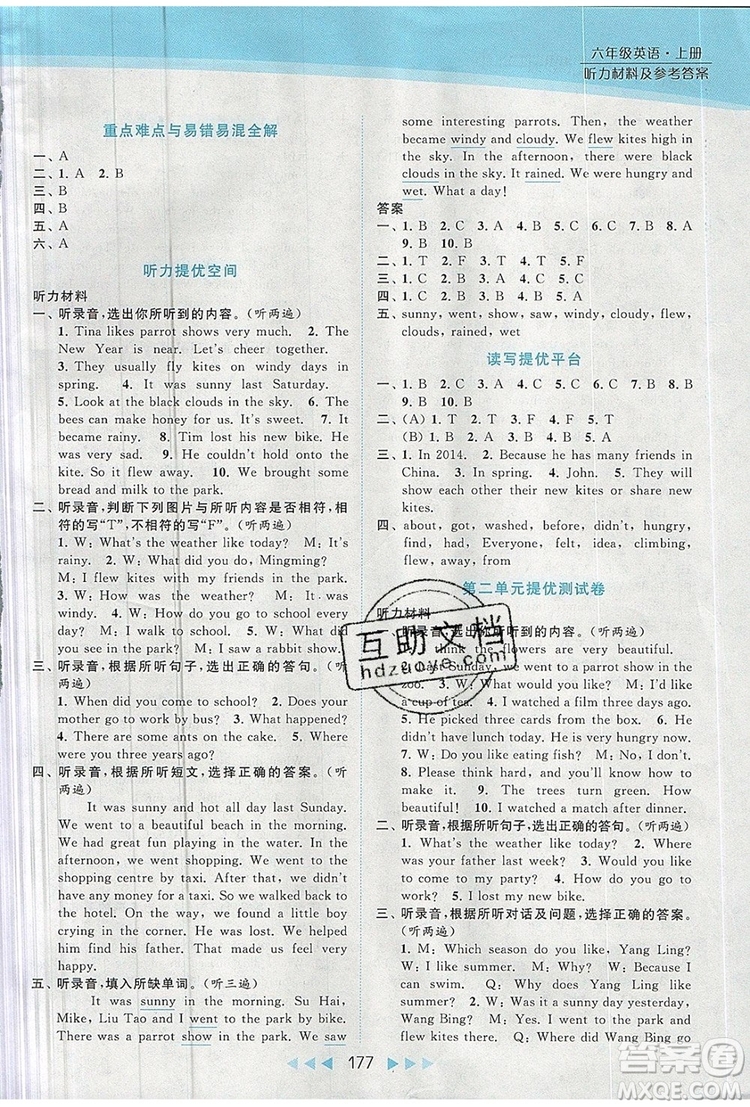 六年级英语·上册
听力材料及参考答案
重点难点与易错易混全解
一、A
二、1. A 2. B
三、B
四、B
五、A
六、A
听力提优空间
听力材料
一、听录音,选出你所听到的内容。(听两遍)
1. Tina likes parrot shows very much. 2. The
New Year is near. Let's cheer together.
3. They usually fly kites on windy days in
spring. 4. It was sunny last Saturday.
5. Look at the black clouds in the sky. 6. The
bees can make honey for us. It's sweet. 7. It
became rainy. 8. Tim lost his new bike. He
was very sad. 9. He couldn't hold onto the
kite. So it flew away. 10. We brought some
bread and milk to the park.
二、听录音,判断下列图片与所听内容是否相符,相
符的写"T",不相符的写"F"。(听两遍)
1. W: What's the weather like today? M: It's
rainy. 2. W: What did you do, Mingming?
M: I flew kites with my friends in the park.
3. W: How was the weather yesterday?
M: It was sunny. 4. W: How do you go to
school every day? M: I go to school by
bus. 5. W: How do you go to school every
day? M: I always walk to school. 6. W: What did
you see in the park? M: I saw a rabbit show.
三、听录音,根据所听句子,选出正确的答句。(听
两遍)
1. When did you come to school? 2. Does your
mother go to work by bus? 3. What happened?
4. Can you hold onto the cakes? 5. Where
were you three years ago?
四、听录音,根据所听短文,选择正确的答案。(听
两遍)
It was sunny and hot all day last Sunday.
We went to a beautiful beach in the morning.
We had great fun playing in the water. In the
afternoon, we went shopping. We went to the
shopping centre by taxi. After shopping, we
were waiting for a taxi, but we didn't find
any buses or a taxi. So we walked back to
the hotel. On the way, we found a little boy
crying in the street. We helped the little boy
find his father. That was really a happy day.
五、听录音,填入所缺单词。(听三遍)
It was sunny in the morning. Su Hai,
Mike, Liu Tao and I went to the park by bike.
There was a parrot show in the park. We saw
some interesting parrots. Then, the weather
became windy and cloudy. We flew kites high
in the sky. In the afternoon, there were black
clouds in the sky. It rained. We were hungry and
wet. What a day!
答案
一、1. B 2. C 3. A 4. A 5. B 6. C 7. A 8. A
9. B 10. B
二、1. T 2. F 3. F 4. T 5. T 6. F
三、1. C 2. B 3. A 4. B 5. A
四、1. C 2. B 3. C 4. A 5. B
五、sunny, went, show, saw, windy, cloudy, flew,
clouds, rained, wet
读写提优平台
一、1. B 2. C 3. B 4. C 5. B
二、(A) 1. T 2. T 3. F 4. F 5. T
(B) 1. C 2. B 3. B 4. C
三、1. In 2014. 2. Because he has many friends in
China. 3. In spring. 4. John. 5. They will
show each other their new kites or share new
kites.
四、about, got, washed, before, didn't, hungry,
find, had, Everyone, felt, idea, because, so,
flew, away, from
第二单元提优测试卷
听力材料
一、听录音,选出你所听到的内容。(听两遍)
1. I think the flowers are very beautiful.
2. Last Sunday, we went to a parrot show in the
zoo. 3. W: What would you like? M: I'd like
a cup of tea. 4. I watched a film three days ago.
5. He picked three cards from the box. 6. W:
Do you like eating fish? M: No, I don't.
7. W: What did you do yesterday? M: I flew kites.
8. Please think hard and you'll know how to
make it. 9. The trees turn green. How
beautiful! 10. I watched a match after dinner.
二、听录音,根据所听句子,选出正确的答句。(听两遍)
1. What's the weather like today? 2. What did
your father do last week? 3. Would you like to
come to my party? 4. How was the weather
yesterday? 5. I lost my new bike.
三、听录音,根据所听对话及问题,选择正确的答案。
(听两遍)
1. M: Which season do you like, Yang Ling?
W: I like summer. M: Why? W: Because I
can swim. Q: Why does Yang Ling like
summer? 2. W: It was a sunny day yesterday,
Wang Bing? M: Yes. W: Where did you go?
M: I went to the zoo. Q: Where did Wang Bing go
177
互助文档
hdzuoye.com
答案圈
MXQE.COM